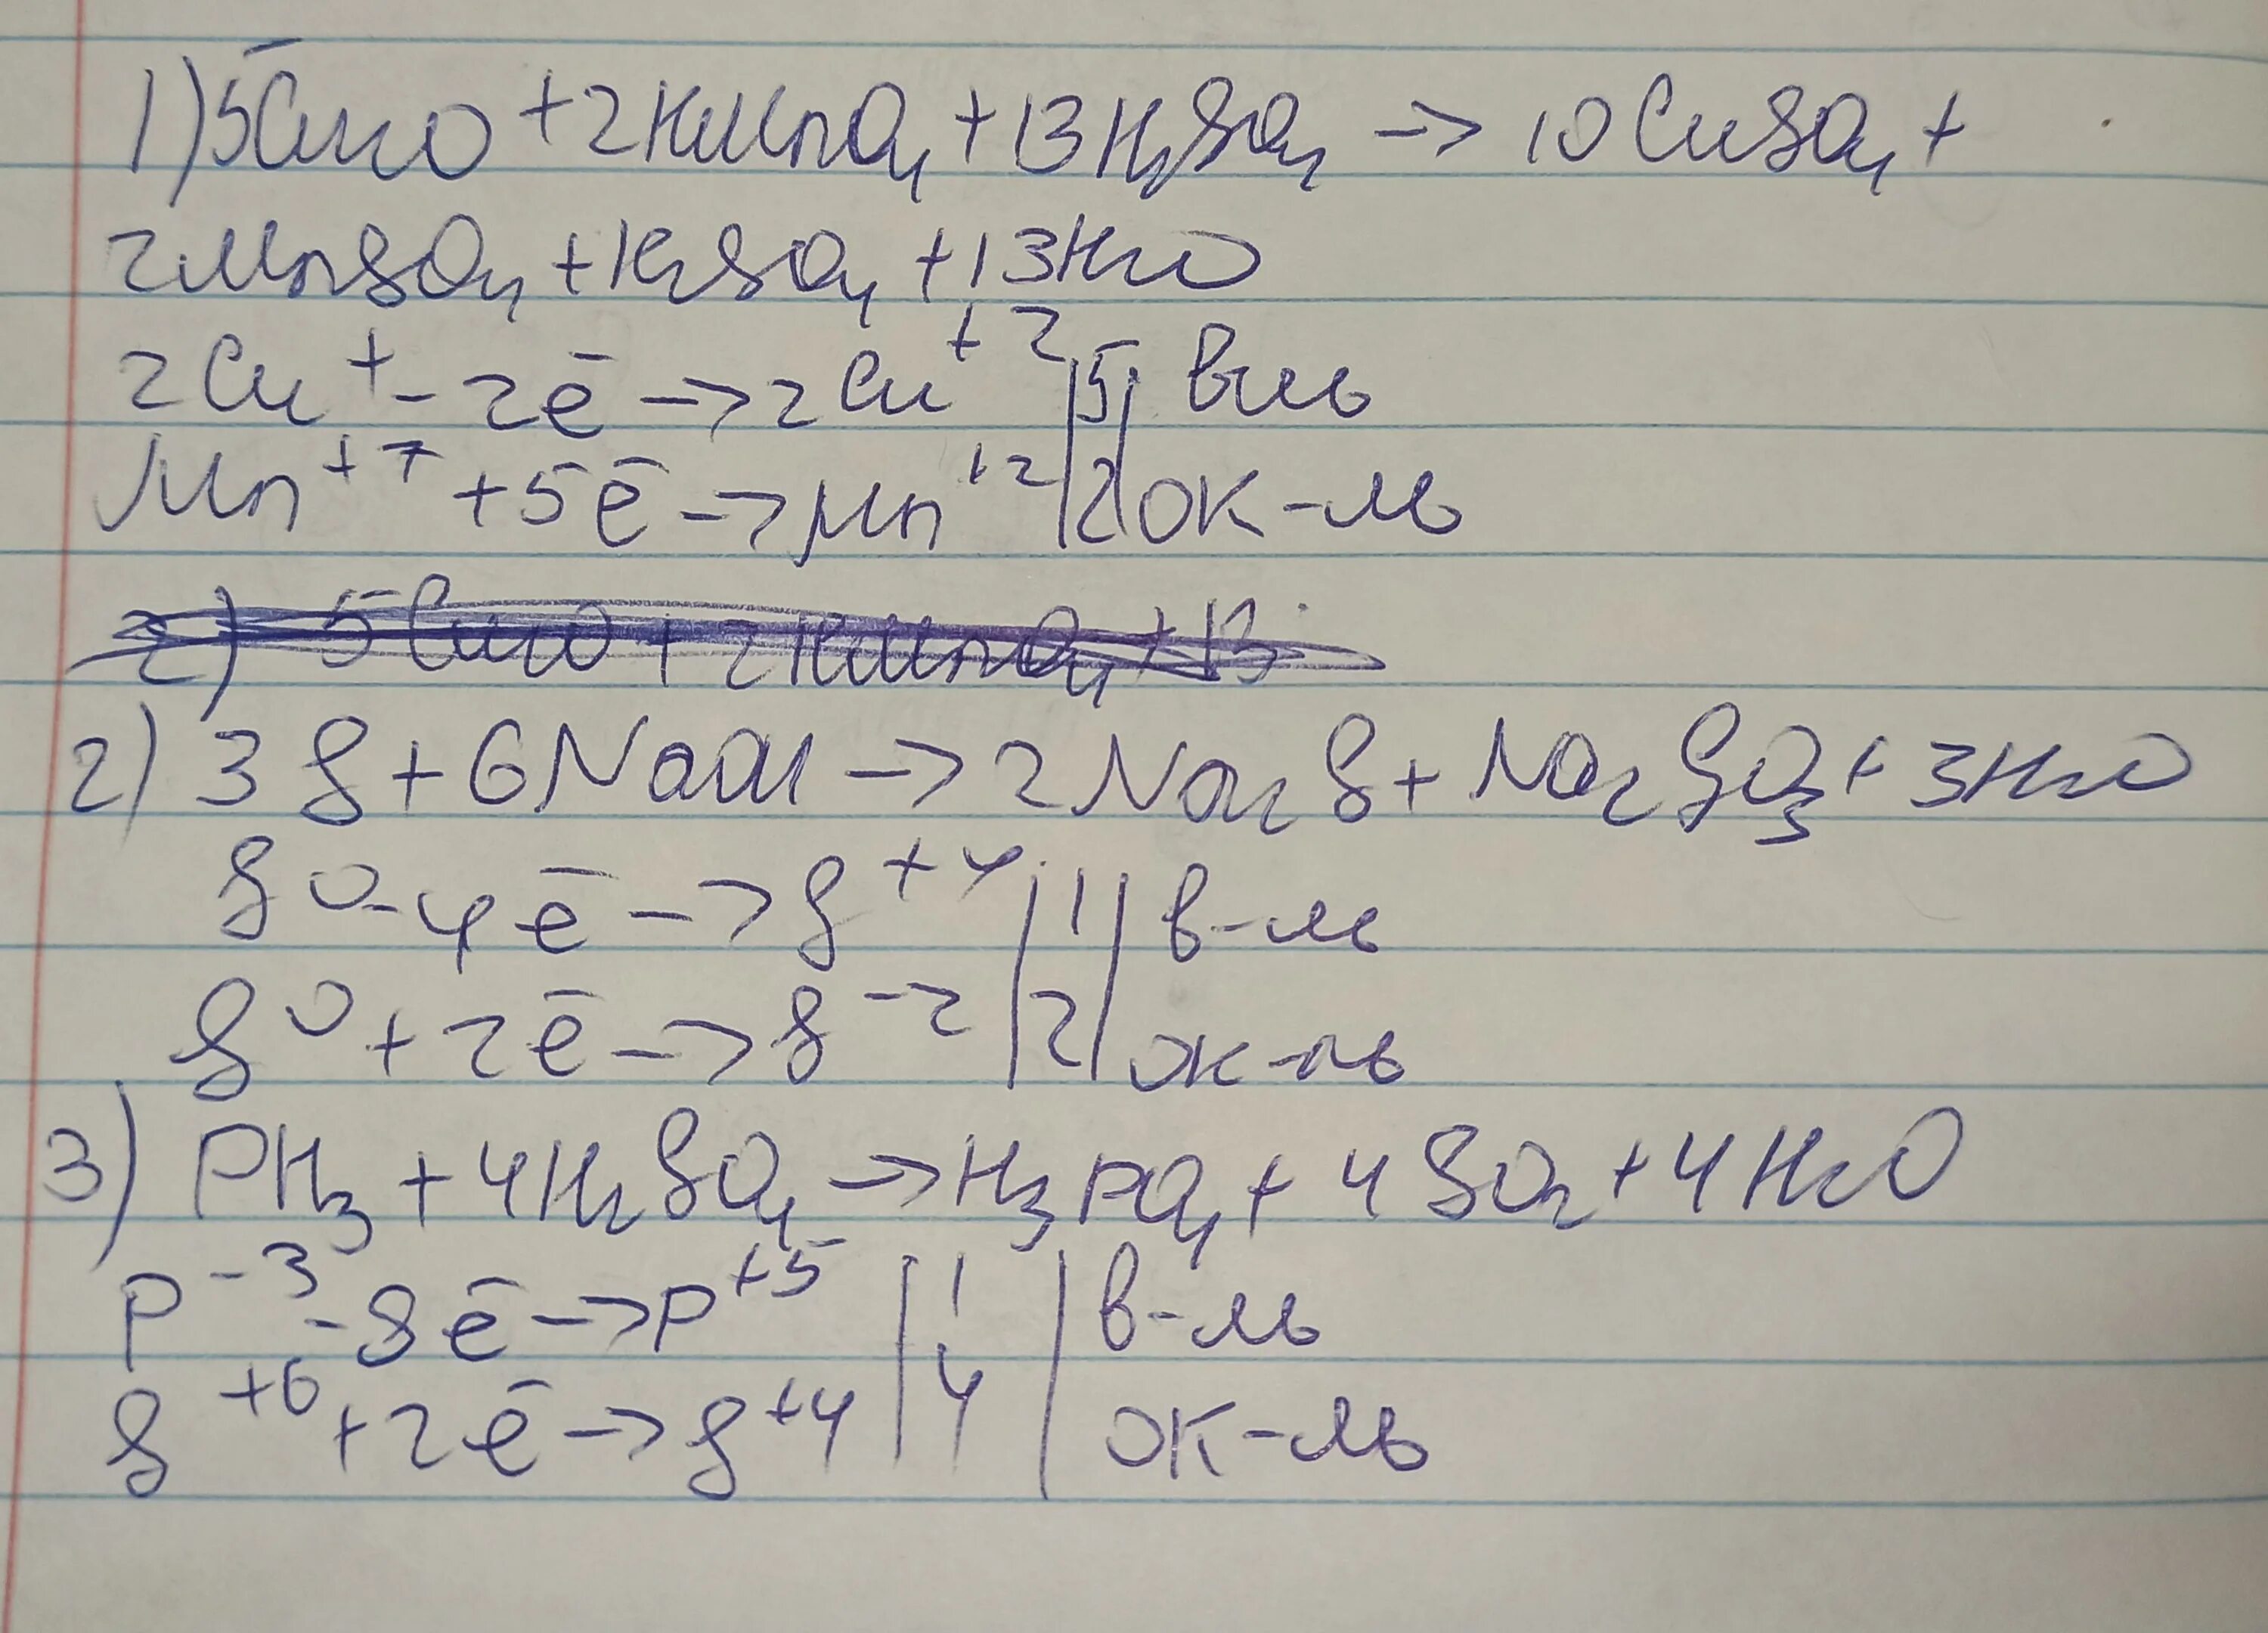 1) 5Cu₂O + 2KMnO₄ + 13H₂SO₄ → 10CuSO₄ +
2MnSO₄ + K₂SO₄ + 13H₂O
2Cu⁺ - 2ē → 2Cu⁺² |5| в-ль
Mn⁺⁷ + 5ē → Mn⁺² |2| ок-ль
2) 5Cu₂O + 2KMnO₄ + 13
2) 3S + 6NaOH → 2Na₂S + Na₂SO₃ + 3H₂O
S⁰ - 4ē → S⁺⁴ |1| в-ль
S⁰ + 2ē → S⁻² |2| ок-ль
3) PH₃ + 4H₂SO₄ → H₃PO₄ + 4SO₂ + 4H₂O
P⁻³ - 8ē → P⁺⁵ |1| в-ль
S⁺⁶ + 2ē → S⁺⁴ |4| ок-ль